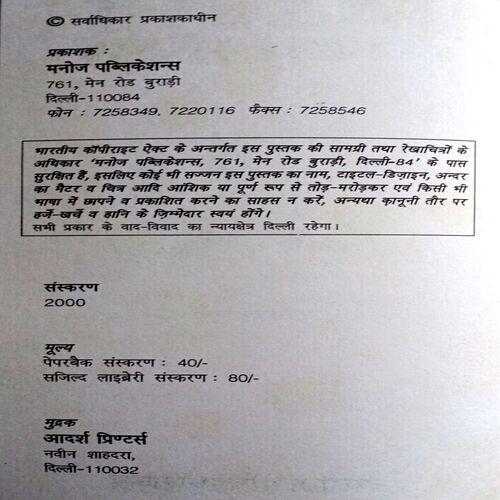 © सर्वाधिकार प्रकाशकाधीन
प्रकाशक :
मनोज पब्लिकेशन्स
761, मेन रोड बुराड़ी
दिल्ली-110084
फोन : 7258349, 7220116 फैक्स : 7258546
भारतीय कॉपीराइट ऐक्ट के अन्तर्गत इस पुस्तक की सामग्री तथा रेखाचित्रों के
अधिकार 'मनोज पब्लिकेशन्स, 761, मेन रोड बुराड़ी, दिल्ली-84' के पास
सुरक्षित हैं, इसलिए कोई भी सज्जन इस पुस्तक का नाम, टाइटल-डिज़ाइन, अन्दर
का मैटर व चित्र आदि आंशिक या पूर्ण रूप से तोड़-मरोड़कर एवं किसी भी
भाषा में छापने व प्रकाशित करने का साहस न करें, अन्यथा कानूनी तौर पर
हर्जे-खर्चे व हानि के ज़िम्मेदार स्वयं होंगे।
सभी प्रकार के वाद-विवाद का न्यायक्षेत्र दिल्ली रहेगा।
संस्करण
2000
मूल्य
पेपरबैक संस्करण : 40/-
सजिल्द लाइब्रेरी संस्करण : 80/-
मुद्रक
आदर्श प्रिण्टर्स
नवीन शाहदरा,
दिल्ली-110032